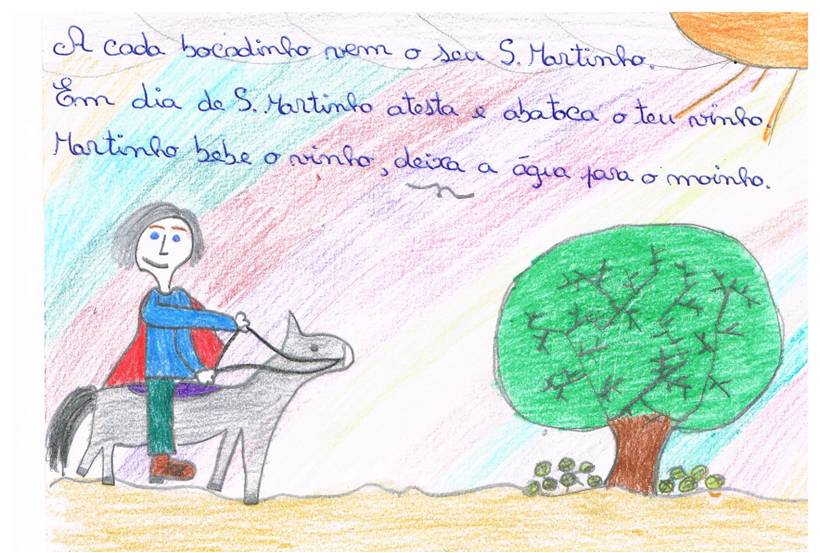 A cada bocadinho vem o seu S. Martinho.
Em dia de S. Martinho atesta e abatoca o teu vinho.
Martinho bebe o vinho, deixa a água para o moinho.